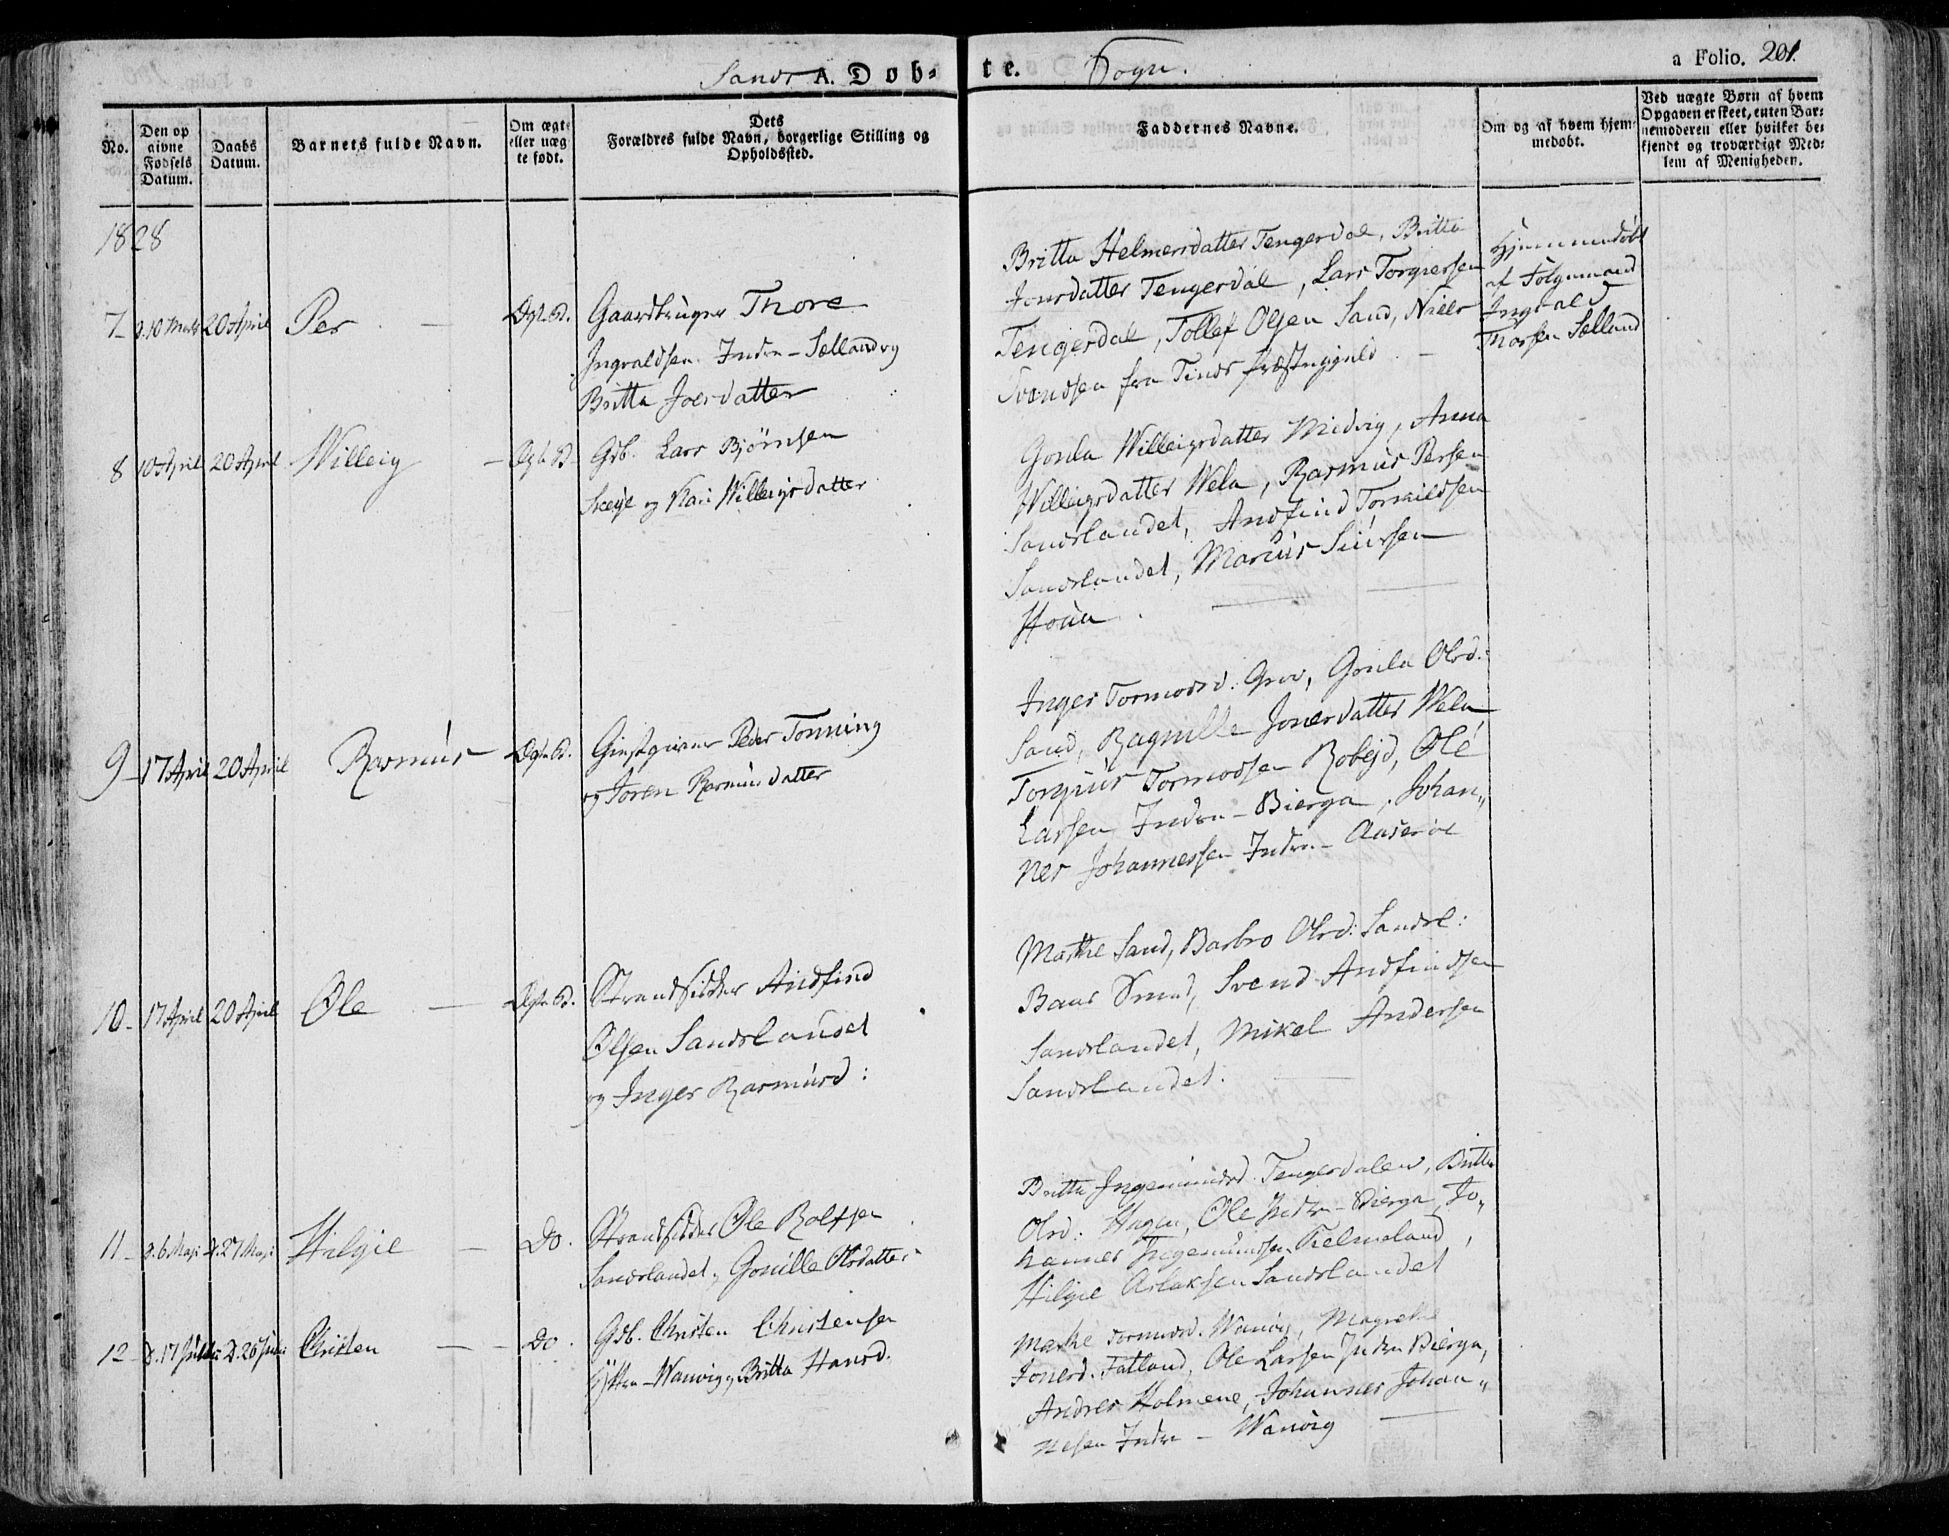 Sands A. Døb- te. Sogn.
a Folio. 201.
No.
Den op
givne
Fødsels
Datum.
Daabs
Datum.
Barnets fulde Navn.
Om ægte
eller uæg
te født.
Dets
Forældres fulde Navn, borgerlige Stilling og
Opholdssted.
Faddernes Navne.
Om og af hvem hjem-
medøbt.
Ved uægte Børn af hvem
Opgaven er skeet, enten Bar-
nemoderen eller hvilket be-
kjendt og troværdigt Med-
lem af Menigheden.
1828
7 d. 10 Marts 20 April Per Ægte B. Gaardbruger Thore
Ingvaldsen Indre-Sælland og
Britta Joersdatter
Britta Helmersdatter Tengesdal, Britta
Jonsdatter Tengesdal, Lars Torgiersen
Tengesdal, Tollef Olsen Sand, Niels
Svendsen fra Tinds Præstegjeld
Hjemmedøbt
af Følgemand
Ingvald
Thorsen Sælland
8 10 April 20 April Willeig Ægte B. Gdb. Lars Bjørnsen
Skeije og Kari Willeigsdatter
Gonla Willeigsdatter Midvig, Anna
Willeigsdatter Wela, Rasmus Persen
Sandslandet, Andfind Torkildsen
Sandslandet, Marcus Siursen
Houa
9 17 April 20 April Rasmus Ægte B. Giestgiver Peder Tonning
og Joren Rasmusdatter
Inger Tormodsd: Grov, Gonla Olsd:
Sand, Ragnille Jonesdatter Wela
Torgiùs Tormodsen Robejd, Ole
Larsen Indre-Bierga, Johan„
nes Johannessen Indre-
10 17 April 20 April Ole Ægte B. Strandsidder Andfind
Olsen Sandslandet
og Inger Rasmusd:
Marthe Sand, Barbro Olsd: Sandsl:
Baar Smed, Svend Andfindsen
Sandslandet, Mikel Andersen
Sandslandet.
11 d. 6 Maji d. 27 Maji Hilgie Do. Strandsidder Ole Rolfsen
Sandslandet, Gonille Olsdatter
Britta Ingemundsd. Tengesdalen, Britta
Olsd: Hagen, Ole Indre-Bierga, Jo„
hannes Ingemundsen Fielmeland,
Hilgie Aslaksen Sandslandet
12 D. 17 D. 26 Christen Do. Gdb. Christen Christensen
Yttre-Wanvig og Britta Hansd.
Marthe Tormodsd. Wanvig, Magrethe
Jonesd. Fatland, Ole Larsen Indre Bierga,
Andres Holmene, Johannes Johan„
nesen Indre - Wanvig